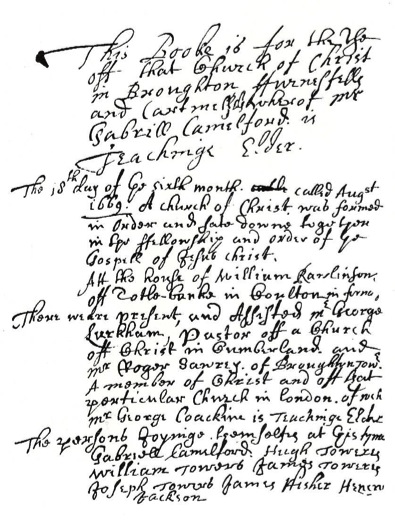 This Booke is for the Use
off that Church of Christ
in Broughton ffurnesfells
and Cartmell wherof mr
Gabriell Camelford is
Teachinge Elder.
The 18th day of ye sixth month called Augst
1669. A church of Christ was formed
in order and sate downe together
in the ffellowship and order of ye
Gospell of Jesus christ.
Att the house of William Rawlinson
off Totle-banke in Coulton in forno,
There weare present, and Assisted mr George
Larkham, Pastor off a Church
off Christ in Cumberland and
mr Roger Sawrey. of BroughtonTowr
A member of Christ and off that
perticular Church in london. of wch
mr George Coackine is Teachinge Elder
The persons Joyninge themselfes at this tyme
Gabriell Camelford. Hugh Toweres
William Towers James Toweres
Joseph Towers James ffisher Henery
Jackson